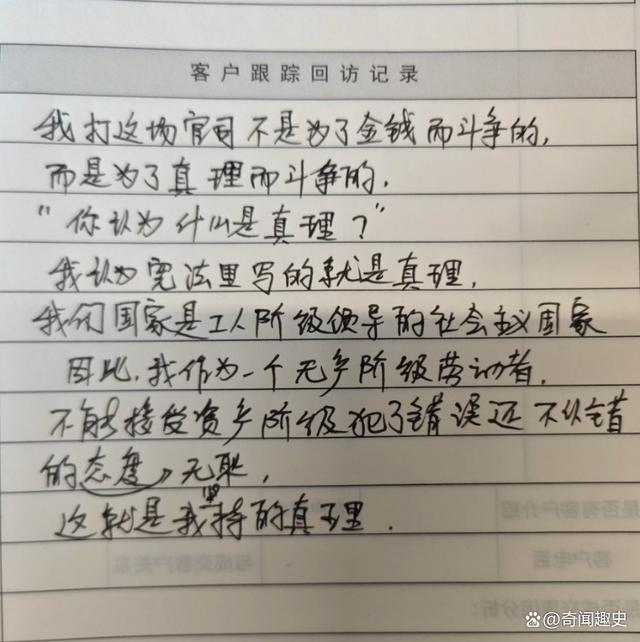 客户跟踪回访记录
我打这场官司不是为了金钱而斗争的,
而是为了真理而斗争的.
“你认为什么是真理?”
我认为宪法里写的就是真理.
我们国家是工人阶级领导的社会主义国家
因此.我作为一个无产阶级劳动者.
不能接受资产阶级犯了错误还不认错
的态度,无耻,
这就是我坚持的真理.
是否有客户介绍
客户电话
与成交客户关系
因分析:
@奇闻趣史